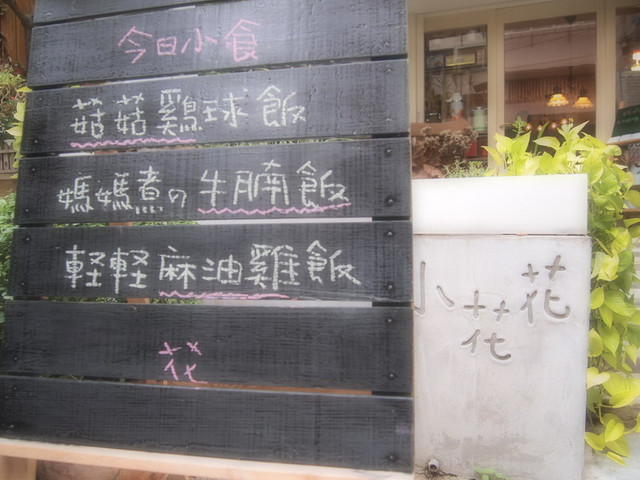 今日小食
菇菇鷄球飯
媽媽煮の牛腩飯
軽軽麻油雞飯
花
小花花